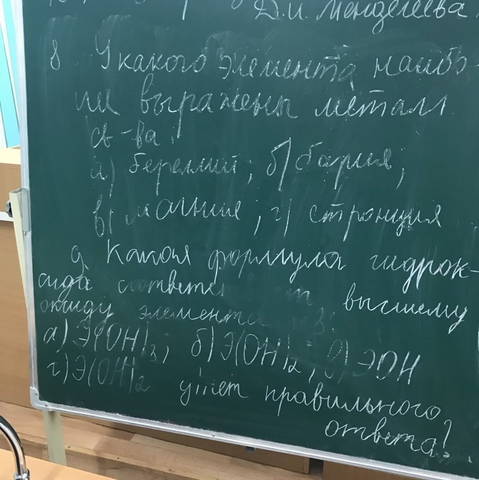 Д.И. Менделеева.
8. У какого элемента наибо-
лее выражены металл.
св-ва:
а) бериллий; б) бария;
в) магния; г) стронция
9. Какая формула гидрок-
сида соответ ет высшему
оксиду элемента №3:
а) Э(OH)3; б) Э(OH)2; в) ЭOH
г) Э(OH)2 у) нет правильного
ответа?